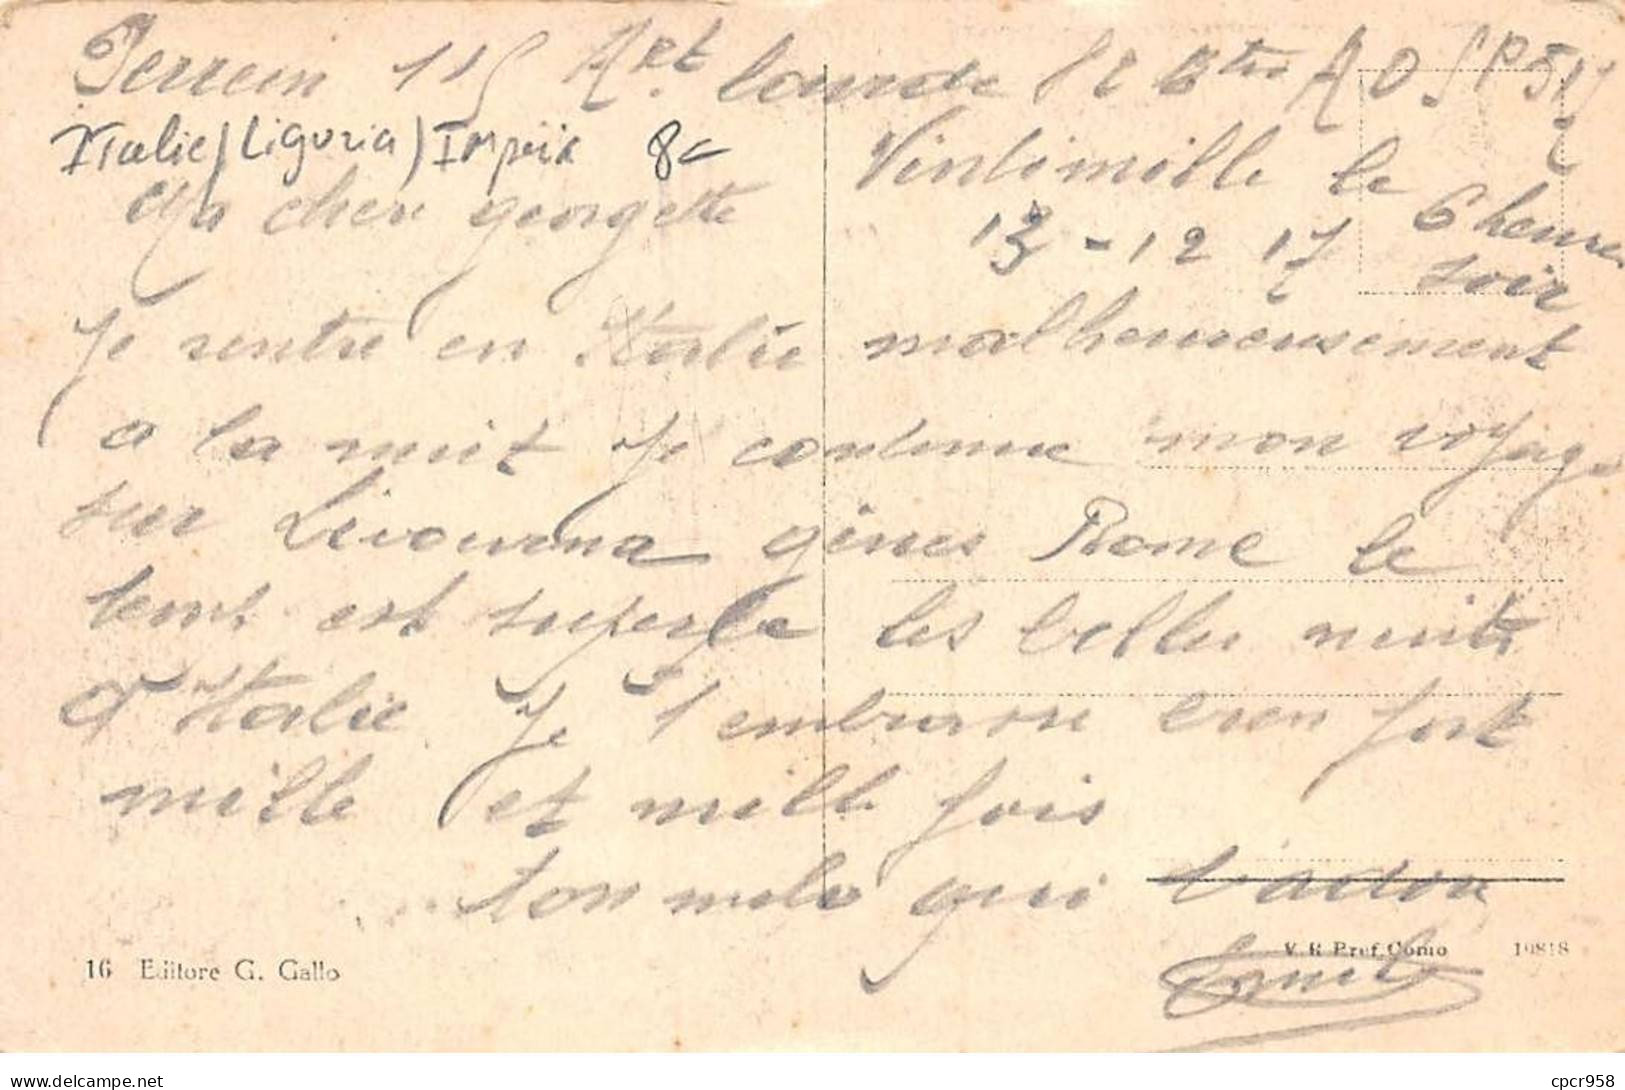 Perrein 115 Art. lourde 82 Btrie A D SP 515
Italie/Liguria/Imperia 8c
Ma cher georgette
Vintimille le
13-12 17
6 heure
soir
Je rentre en Italie malheureusement
a la nuit Je continue mon voyage
sur Livourna gines Rome le
tems est superbe les belles nuits
d'Italie Je t'embrasse bien fort
mille et mille fois
ton qui t'adore
Ernest
V. R Pref. Como 19818
16 Editore G. Gallo
cpcr958